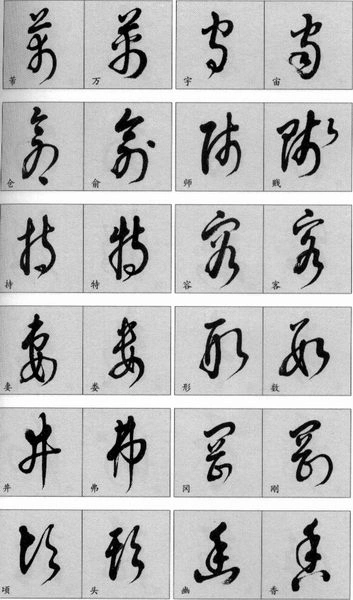 万 宇 宙
仓 俞 师 贱
持 特 容 客
妻 娄 形 数
井 弗 冈 刚
头 幽 香